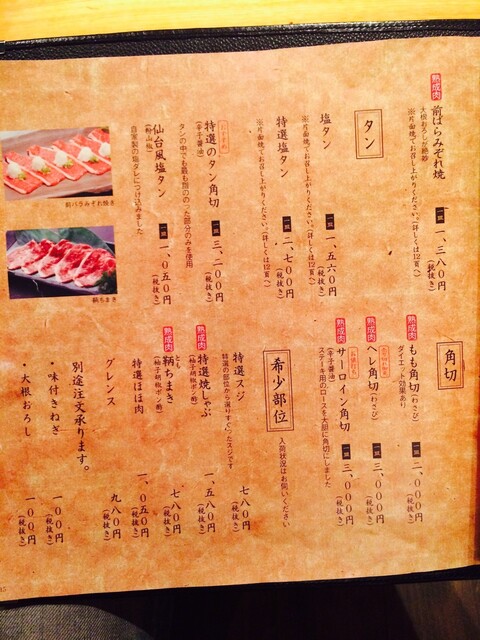 熟成肉
前ばらみぞれ焼
大根おろしが絶妙
※片面焼てお召し上がりください。(詳しくは12頁へ)
一皿 一、三八〇円
(税抜き)
タン
塩タン
※片面焼てお召し上がりください。(詳しくは12頁へ)
一皿 一、五六〇円
(税抜き)
特選塩タン
※片面焼てお召し上がりください。(詳しくは12頁へ)
一皿 二、七〇〇円
(税抜き)
おすすめ
特選のタン角切
(辛子醤油)
タンの中でも最も脂ののった部分のみを使用
一皿 三、二〇〇円
(税抜き)
仙台風塩タン
(粉山椒)
自家製の塩ダレにつけ込みました
一皿 一、〇五〇円
(税抜き)
前バラみぞれ焼き
鞆ちまき
角切
熟成肉
もも角切(わさび)
ダイエット効果あり
一皿 二、〇〇〇円
(税抜き)
ヘレ角切(わさび)
一皿 三、〇〇〇円
(税抜き)
熟成肉
サーロイン角切
(辛子醤油)
ステーキ用のロースを大胆に角切にしました
一皿 三、〇〇〇円
(税抜き)
希少部位
入荷状況はお伺いください
特選スジ
特選の部位から選りすぐったスジです
七八〇円
(税抜き)
熟成肉
特選焼しゃぶ
(柚子胡椒ポン酢)
一、五八〇円
(税抜き)
熟成肉
とも
鞆ちまき
(柚子胡椒ポン酢)
七八〇円
(税抜き)
特選ほほ肉
一、〇五〇円
(税抜き)
グレンス
九八〇円
(税抜き)
別途注文承ります。
・味付きねぎ
一〇〇円
(税抜き)
・大根おろし
一〇〇円
(税抜き)